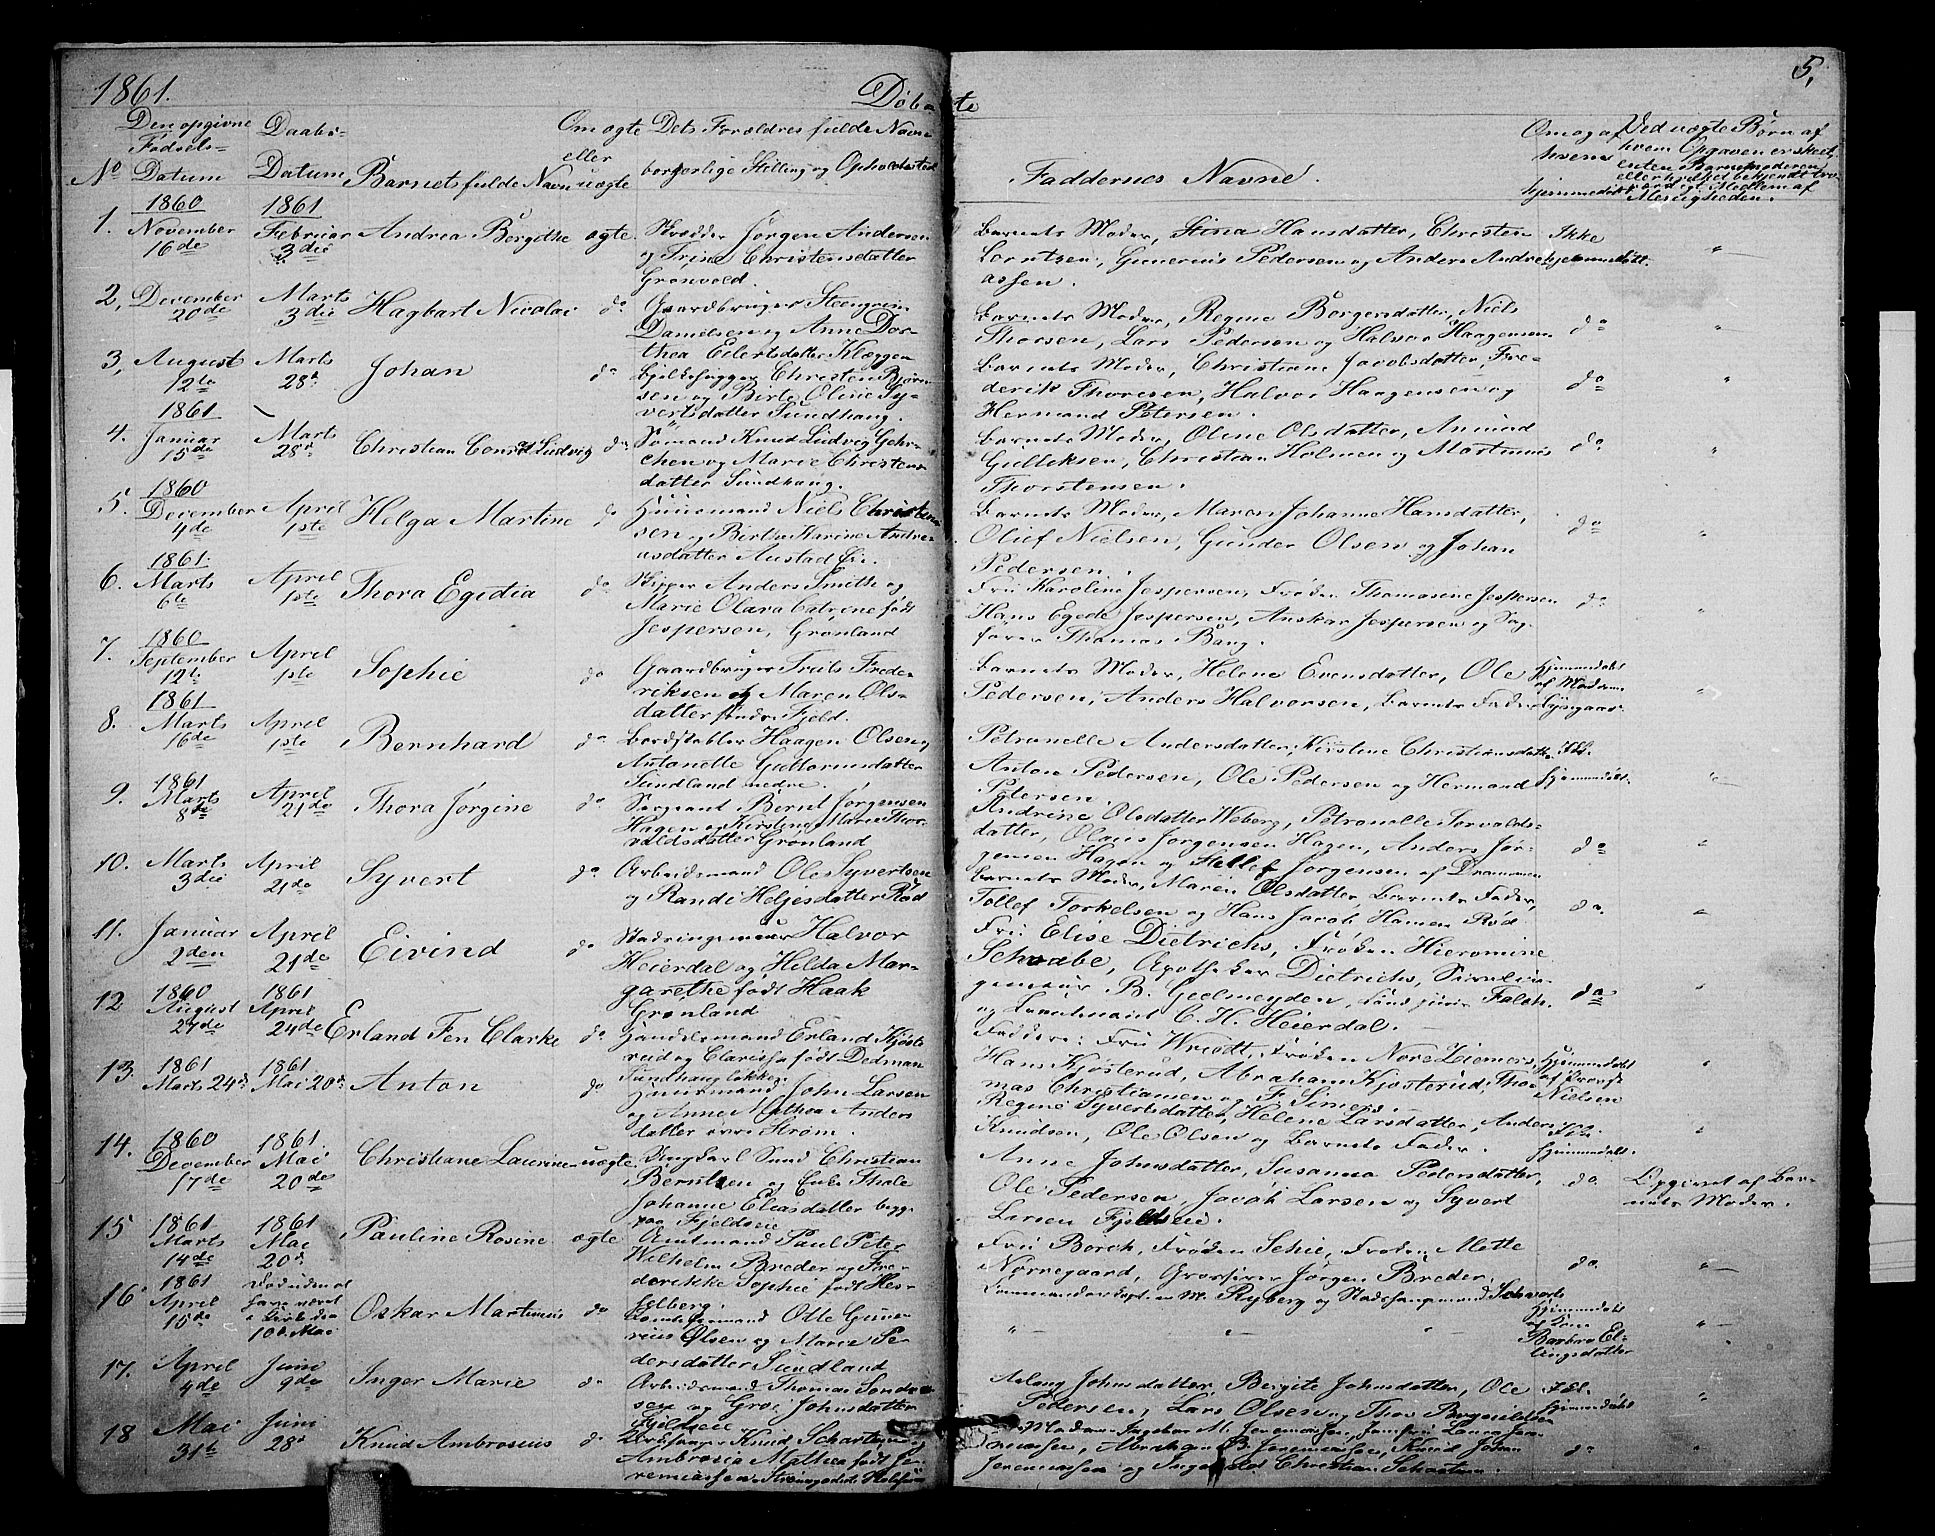 1861.
Døbte
5,
Den opgivne Fødsels-
Daabs-
Om ægte eller
Dets Forældres fulde Navne
Om og af hvem
Ved uægte Børn af
hvem Opgaven er skeet,
enten Barnemoderen
eller hvilket bekjendt tro-
værdigt Medlem af
Menigheden.
No Datum
Datum
Barnets fulde Navn
uægte
borgerlige Stilling og Opholdssted
Faddernes Navne.
hjemmedøbt
1860
1861
1. November 16de
Februar 3die
Andrea Børgithe
ægte.
Skrædder Jørgen Andersen
og Trine Christensdatter
Grønvold.
Barnets Moder, Stina Hansdatter, Christen
Lorntsen, Gunerius Pedersen og Anders Andre-
assen.
Ikke
hjemmedøbt.
2, December 20de
Marts 3die
Hagbart Nicolai
do
Gaardbruger Steengrim
Danielsen og Anne Dor-
thea Eilertsdatter Kloeggen
Barnets Moder, Regine Børgersdatter, Niels
Thorsen, Lars Pedersen og Halvor Haagensen
do
3, August 12te
Marts 28de
Johan
do
Bjelkehugger Christen Bjørn-
sen og Birte Oline Sy-
vertsdatter Sundhaug.
Barnets Moder, Christiane Jacobsdatter, Fre-
derik Thoresen, Halvor Haagensen og
Hermand Petersen.
do
1861
4. Januar 15de
Marts 28de
Christian Conrad Ludvig
do
Sømand Knud Ludvig Gehr-
chen og Marie Christens-
datter Sundhaug.
Barnets Moder, Oline Olsdatter, Amund
Gulliksen, Christian Holmen og Martinius
Thorstensen.
do
1860
5. December 4de
April 1ste
Helga Martine
do
Huusmand Niels Christen-
sen og Birthe Karine Andre-
asdatter Austad Eie.
Barnets Moder, Maren Johanne Hansdatter,
Oluf Nielsen, Gunder Olsen og Johan
Pedersen.
do
1861.
6. Marts 6te
April 1ste
Thora Egidia
do
Skipper Anders Smith og
Marie Olava Catrine født
Jespersen, Grønland
Fru Karoline Jespersen, Frøken Thomasine Jespersen
Hans Egede Jespersen, Anskar Jespersen og Sag-
fører Thomas Bang.
do
1860
7. September 12te
April 1ste
Sophie
do
Gaardbruger Truls Frede-
riksen og Maren Ols-
datter søndre Fjeld.
Barnets Moder, Helene Evensdatter, Ole
Pedersen, Anders Halvorsen, Barnets Fader
Hjemmedøbt
af Madame
Lysgaar
1861
8. Marts 16de
April 1ste
Bernhard
do
Bordstabler Haagen Olsen,
Antonette Guttormsdatter
Sundland nedre.
Petronelle Andersdatter, Kirstine Christiansdatter
Anton Pedersen, Ole Pedersen og Hermand
Petersen.
Ikke
hjemmedøbt.
1861
9. Marts 8de
April 21de
Thora Jørgine
do
Sergeant Bernt Jørgensen
Hagen og Kirstine Marie Thor-
valdsdatter Grønland
Andrine Olsdatter Weberg, Petronelle Torvalds-
datter, Olaus Jørgensen Hagen, Anders Jør-
gensen Hagen og Stellef Jørgensen af Drammen
do
10. Marts 3die
April 21de
Syvert
do
Arbeidsmand Ole Syvertsen
og Randi Heljesdatter Rød
Barnets Moder, Maren Olsdatter, Barnets Fader,
Tollef Torkelsen og Hans Jacob Hansen Rød
do.
11. Januar 2den
April 21de
Eivind
do
Stadsingenieur Halvor
Heierdal og Hilda Mar-
garethe født Haak
Grønland
Fru Elise Dietrichs, Frøken Hieronimine
Schwabe, Apotheker Dietrichs, Stads In-
genieur B. Geelmeyden, Landfuur Falch.
og Lieutenant C. H. Heierdal.
do
1860
1861
12 August 27de
April 24de
Erland Fen Clarke
do
Handelsmand Erland Kjøste-
rud og Clarissa født Dedman
Sundhaugløkken
Faddere: Fru Wriedt, Frøken Nore Ziemers,
Hans Kjøsterud, Abraham Kjøsterud, Tho-
mas Christiansen og F. Simers.
Hjemmedøbt
af Provst
Nielsen
1861
1861
13. Marts 24de
Mai 20de
Anton
do
Huusmand John Larsen
og Anne Mathea Anders
datter øvre Strøm.
Regine Syvertsdatter, Helene Larsdatter, Anders
Knudsen, Ole Olsen og Barnets Fader.
Ikke
hjemmedøbt.
1860
1861.
14. December 17de
Mai 20de
Christiane Laurine
uægte.
Ungkarl Smed Christian
Berntsen og Enke Thale
Johanne Eliasdatter begge
paa Fjeldseie
Anne Johnsdatter, Susanna Pedersdatter,
Ole Pedersen, Jacob Larsen og Syvert
Larsen Fjeldseie.
do
Opgivet af Bar-
nets Moder.
1861
1861
15 Marts 14de
Mai 20de
Pauline Rosine
ægte
Amtmand Paul Peter
Wilhelm Breder og Fre-
derikke Sophie født Hes-
selberg.
Fru Borch, Frøken Schie, Frøken Mette
Nørregaard, Grosserer Jørgen Breder,
Commandeurcapt. M. Ryberg og Stadshauptmand Schwartz
do
1861
16. April 15de
Født uden at
have været
i Kirke den
10de Mai
Oskar Martinius
do
Otte Gune-
rius Olsen og Maren Pe-
dersdatter Sundland
Hjemmedøbt
af Kone
Barbra El-
lingsdatter
17. April 4de
Juni 9de
Inger Marie
do
Arbeidsmand Thomas Tønnes-
sen og Groe Johnsdatter
Fjeldseie
Aslaug Johnsdatter, Bergite Johnsdatter, Ole
Pedersen, Lars Olsen og Thor Bergulsen
Ikke
hjemmedøbt
18 Mai 31te
Juni 28de
Knud Ambrosius
do
Knud Schartum og
Ambrosia Mathea født Je-
remiassen
Jeremiassen og Ingebret Christian Schartum.
do